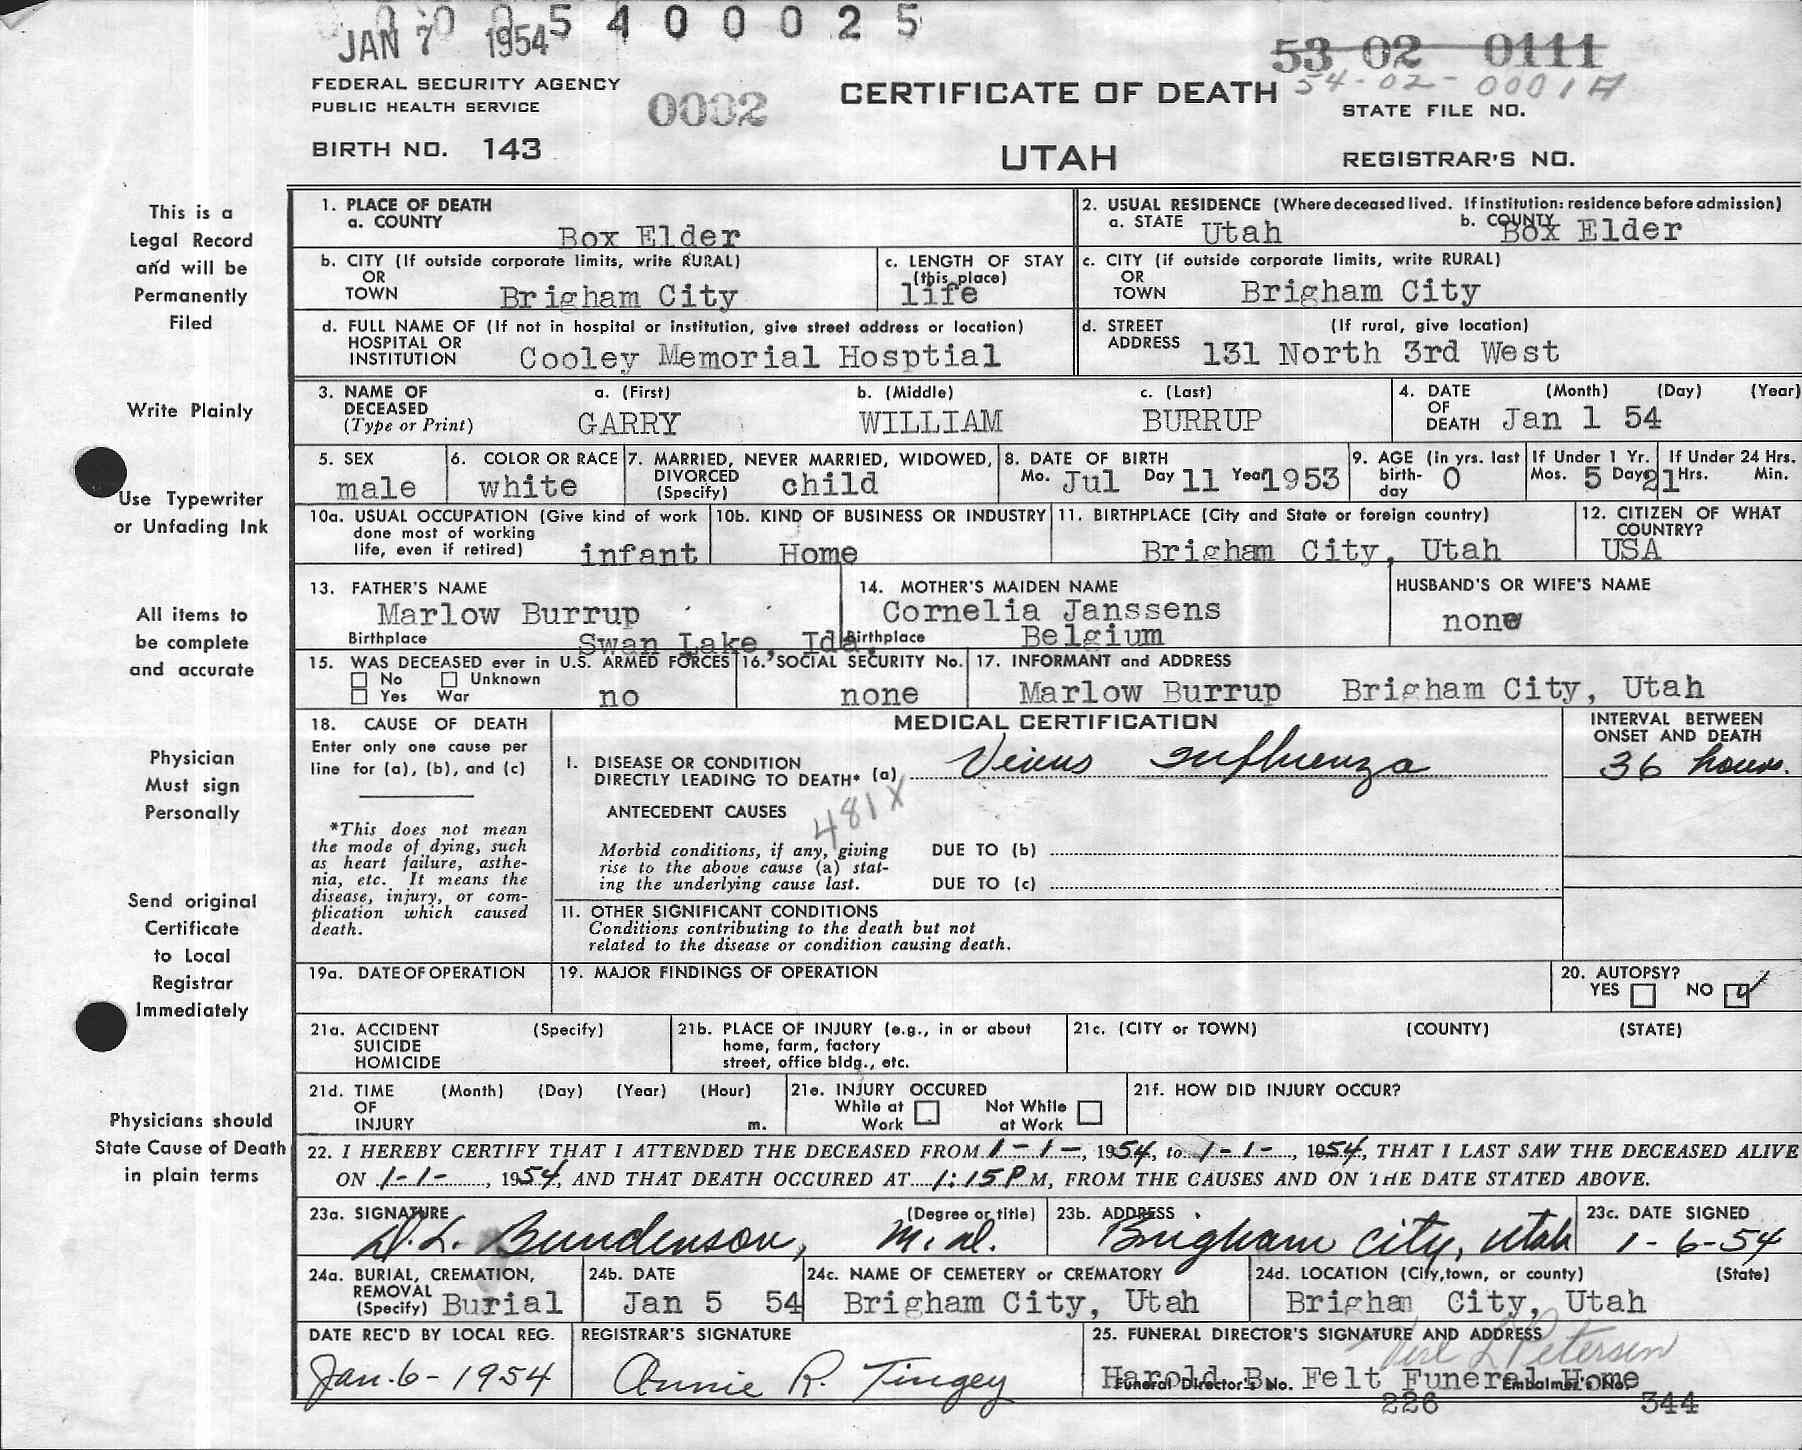 0 0 0 5 4 0 0 0 2 5
JAN 7 1954
53 02 0111
54-02-0001A
FEDERAL SECURITY AGENCY
PUBLIC HEALTH SERVICE
0002
CERTIFICATE OF DEATH
STATE FILE NO.
BIRTH NO. 143
UTAH
REGISTRAR'S NO.
This is a
Legal Record
and will be
Permanently
Filed
Write Plainly
Use Typewriter
or Unfading Ink
All items to
be complete
and accurate
Physician
Must sign
Personally
Send original
Certificate
to Local
Registrar
Immediately
Physicians should
State Cause of Death
in plain terms
1. PLACE OF DEATH
a. COUNTY Box Elder
2. USUAL RESIDENCE (Where deceased lived. If institution: residence before admission)
a. STATE Utah b. COUNTY Box Elder
b. CITY (If outside corporate limits, write RURAL)
OR
TOWN Brigham City
c. LENGTH OF STAY
(this place)
life
c. CITY (if outside corporate limits, write RURAL)
OR
TOWN Brigham City
d. FULL NAME OF (If not in hospital or institution, give street address or location)
HOSPITAL OR
INSTITUTION Cooley Memorial Hosptial
d. STREET (If rural, give location)
ADDRESS 131 North 3rd West
3. NAME OF
DECEASED
(Type or Print)
a. (First) b. (Middle) c. (Last)
GARRY WILLIAM BURRUP
4. DATE (Month) (Day) (Year)
OF
DEATH Jan 1 54
5. SEX
male
6. COLOR OR RACE
white
7. MARRIED, NEVER MARRIED, WIDOWED,
DIVORCED
(Specify) child
8. DATE OF BIRTH
Mo. Jul Day 11 Year 1953
9. AGE (in yrs. last
birth-
day 0
If Under 1 Yr.
Mos. 5 Days 21
If Under 24 Hrs.
Hrs. Min.
10a. USUAL OCCUPATION (Give kind of work
done most of working
life, even if retired) infant
10b. KIND OF BUSINESS OR INDUSTRY
Home
11. BIRTHPLACE (City and State or foreign country)
Brigham City, Utah
12. CITIZEN OF WHAT
COUNTRY?
USA
13. FATHER'S NAME
Marlow Burrup
Birthplace Swan Lake, Ida.
14. MOTHER'S MAIDEN NAME
Cornelia Janssens
Birthplace Belgium
HUSBAND'S OR WIFE'S NAME
none
15. WAS DECEASED ever in U.S. ARMED FORCES
No Unknown
Yes War no
16. SOCIAL SECURITY No.
none
17. INFORMANT and ADDRESS
Marlow Burrup Brigham City, Utah
18. CAUSE OF DEATH
Enter only one cause per
line for (a), (b), and (c)
*This does not mean
the mode of dying, such
as heart failure, asthe-
nia, etc. It means the
disease, injury, or com-
plication which caused
death.
MEDICAL CERTIFICATION
INTERVAL BETWEEN
ONSET AND DEATH
I. DISEASE OR CONDITION
DIRECTLY LEADING TO DEATH* (a) Virus Influenza
36 hours.
ANTECEDENT CAUSES
481X
Morbid conditions, if any, giving
rise to the above cause (a) stat-
ing the underlying cause last.
DUE TO (b)
DUE TO (c)
II. OTHER SIGNIFICANT CONDITIONS
Conditions contributing to the death but not
related to the disease or condition causing death.
19a. DATE OF OPERATION
19. MAJOR FINDINGS OF OPERATION
20. AUTOPSY?
YES NO
21a. ACCIDENT (Specify)
SUICIDE
HOMICIDE
21b. PLACE OF INJURY (e.g., in or about
home, farm, factory
street, office bldg., etc.
21c. (CITY or TOWN) (COUNTY) (STATE)
21d. TIME (Month) (Day) (Year) (Hour)
OF
INJURY m.
21e. INJURY OCCURED
While at Not While
Work at Work
21f. HOW DID INJURY OCCUR?
22. I HEREBY CERTIFY THAT I ATTENDED THE DECEASED FROM 1-1-, 1954, to 1-1-, 1954, THAT I LAST SAW THE DECEASED ALIVE
ON 1-1-, 1954, AND THAT DEATH OCCURED AT 1:15 P M, FROM THE CAUSES AND ON THE DATE STATED ABOVE.
23a. SIGNATURE (Degree or title)
D.L. Bundenson, M.d.
23b. ADDRESS
Brigham City, Utah
23c. DATE SIGNED
1-6-54
24a. BURIAL, CREMATION,
REMOVAL
(Specify) Burial
24b. DATE
Jan 5 54
24c. NAME OF CEMETERY or CREMATORY
Brigham City, Utah
24d. LOCATION (City, town, or county) (State)
Brigham City, Utah
DATE REC'D BY LOCAL REG.
Jan. 6-1954
REGISTRAR'S SIGNATURE
Annie R. Tingey
25. FUNERAL DIRECTOR'S SIGNATURE AND ADDRESS
L Petersen
Harold B. Felt Funeral Home
Funeral Director's No. Embalmer's No.
226 344